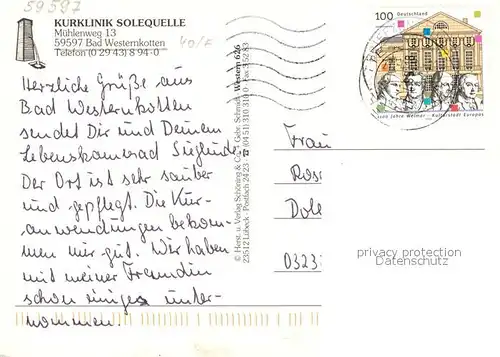 59597
KURKLINIK SOLEQUELLE
Mühlenweg 13
59597 Bad Westernkotten
Telefon (0 29 43) 8 94-0
40/F
Herzliche Grüße aus
Bad Westernkotten
sendet Dir und Deinem
Lebenskamerad Sieglinde.
Der Ort ist sehr sauber
und gepflegt. Die Kur-
anwendungen bekom-
men mir gut. Wir haben
mit meiner Freundin
schon einiges unter-
nommen.
© Herst. u. Verlag Schöning & Co. + Gebr. Schmidt Western 626
23512 Lübeck · Postfach 24 23 · ☎ (04 51) 310 31 0 · Fax 352 83
100 Deutschland
1100 Jahre Weimar – Kulturstadt Europas
Frau
Ross
Dole
0323
privacy protection
Datenschutz